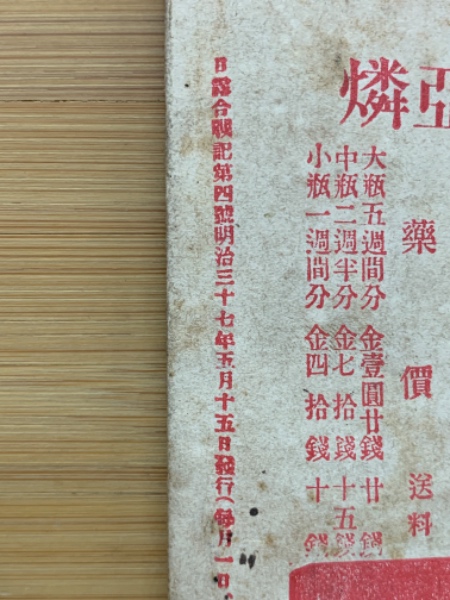 亞燐
藥價
送料
大瓶五週間分 金壹圓廿錢 廿錢
中瓶二週半分 金七拾錢 十五錢
小瓶一週間分 金四拾錢 十錢
日露合戰記第四號明治三十七年五月十五日發行(每月一日